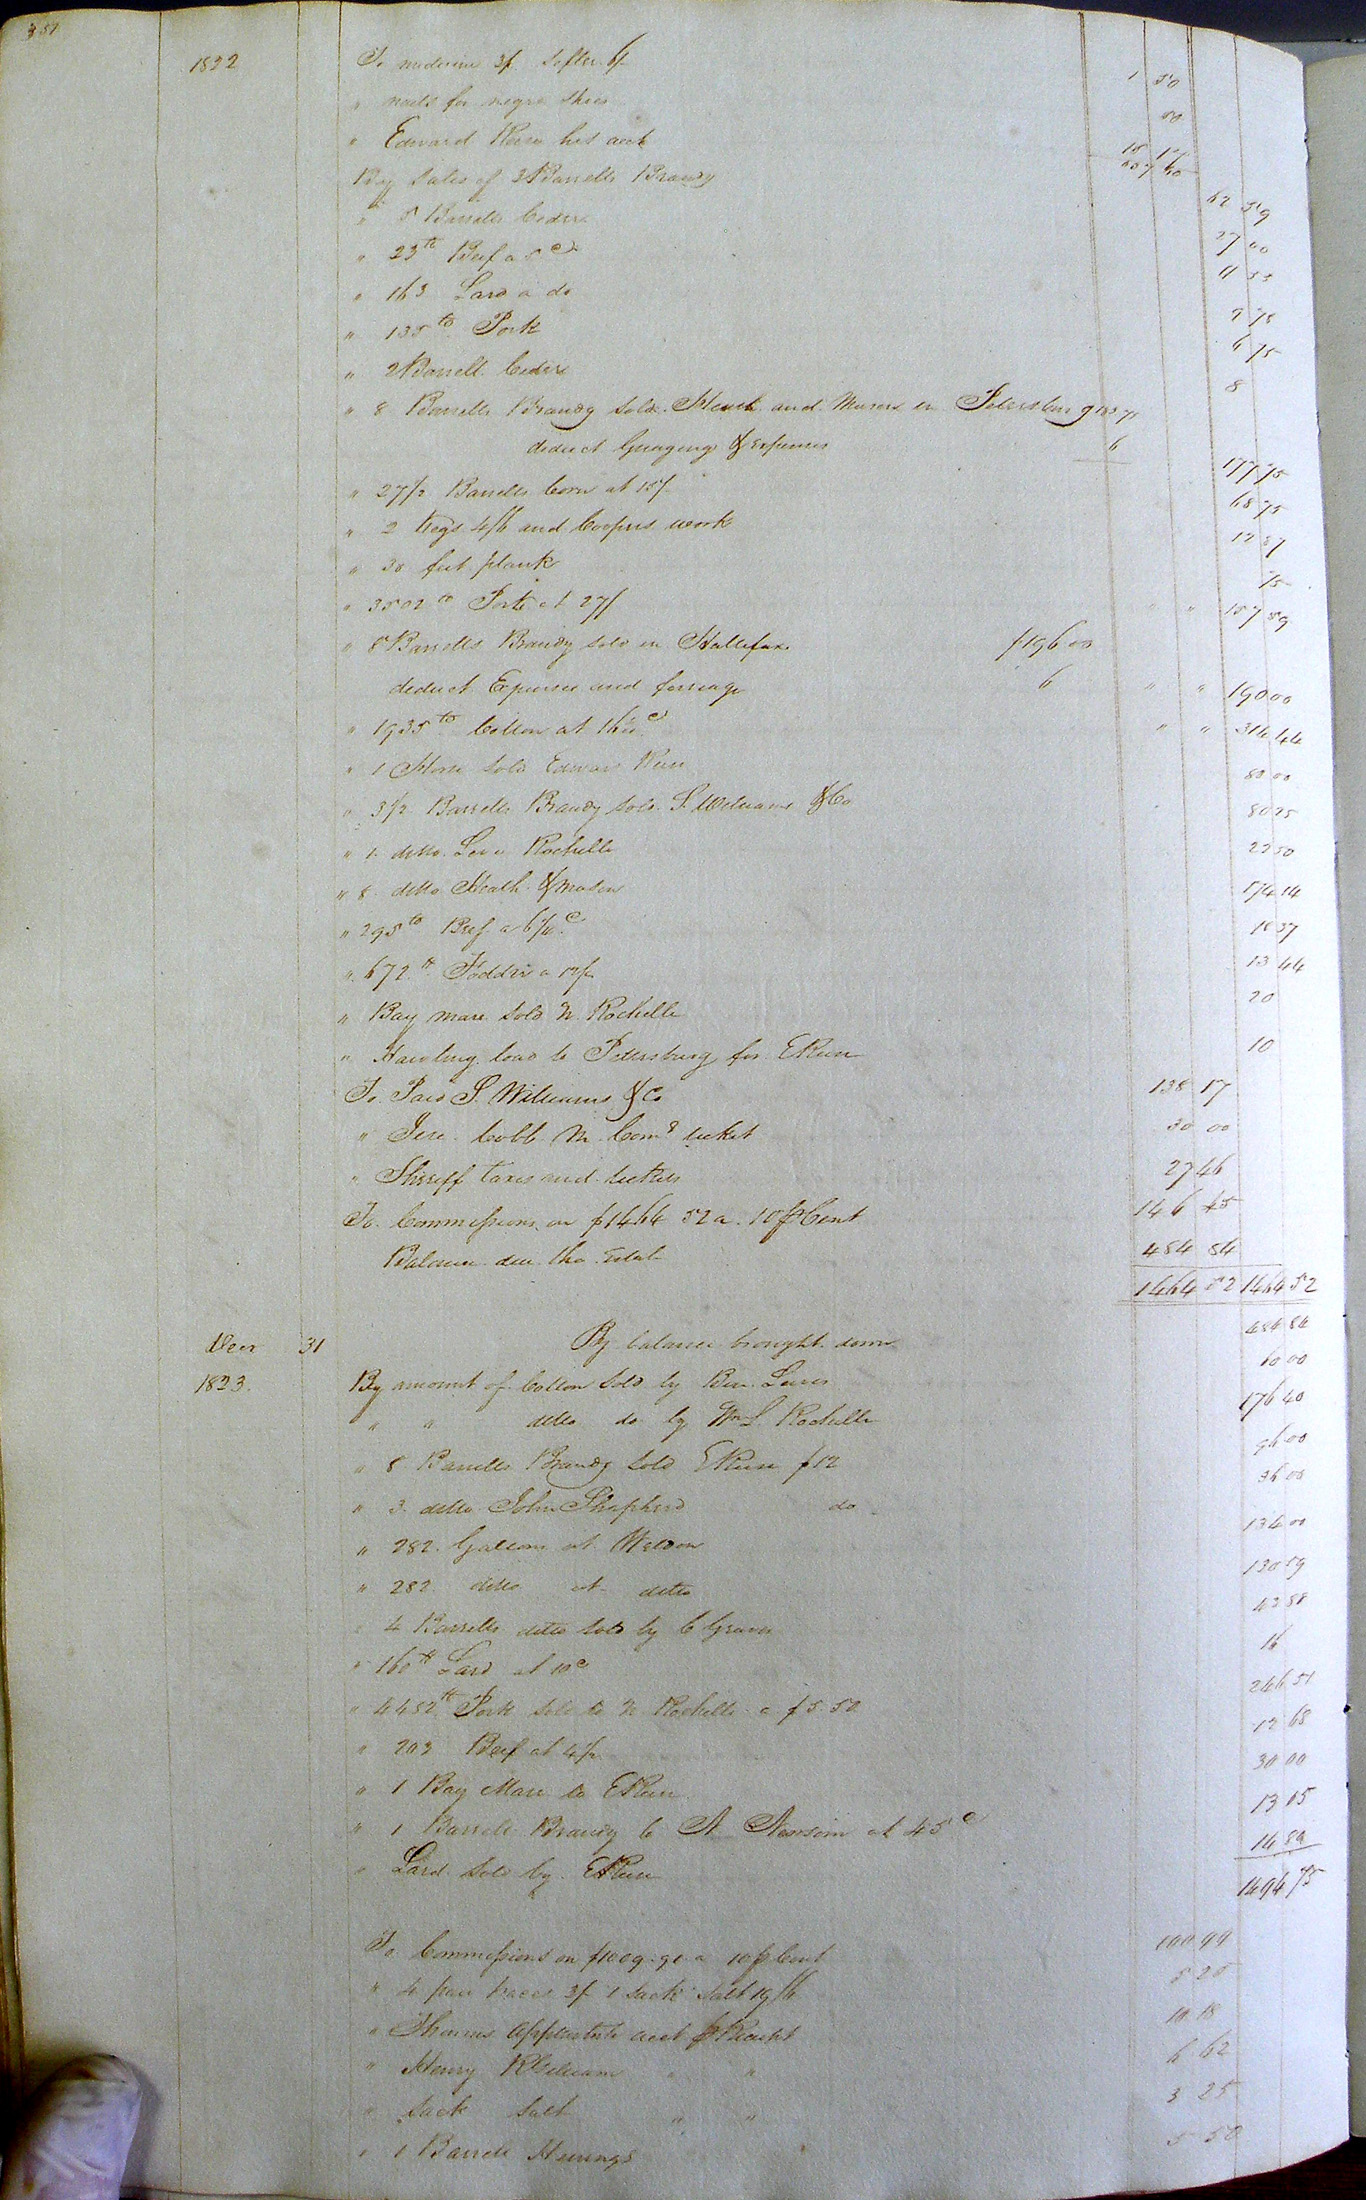 351
1822 To medicine 3/. Sifter 6/ 1 50
" nails for negro shoes 50
" Edward Reese his acct 15 12
657 60
By Sales of 3 Barrells Brandy 62 59
" 5 Barrells Ceder 27 00
" 23 lb Beef a 5 c 11 55
" 163 Lard a do
" 135 lb Pork 6 75
" 2 Barrell Ceder 8
" 8 Barrells Brandy Sold Heath and Mason in Petersburg 183 75
deduct Guaging & Expenses 6 177 75
" 27 1/2 Barrells Corn at 15/ 68 75
" 2 Kegs 4/6 and Coopers work 12 87
" 30 feet plank 75
" 3502 lb Pork at 27/ " " 157 59
" 8 Barrells Brandy Sold in Hallifax $196 00
deduct Expenses and ferriage 6 " " 190 00
" 1935 lb Cotton at 16 1/4 c " " 314 44
" 1 Horse Sold Edward Reese 80 00
" 3 1/2 Barrells Brandy Sold S. Williams & Co 80 25
" 1 ditto Levi Rochelle 22 50
" 8 ditto Heath & Mason 174 14
" 295 lb Beef a 6 1/4 c 18 37
" 672 lb Fodder a 12/ 13 44
" Bay mare Sold N. Rochelle 20
" Hawling load to Petersburg for E Reese 10
To Paid S. Williams & Co 138 17
" Jere. Cobb M. Com ticket 30 00
" Sheriff taxes and tickets 27 46
To Commissions on $1464 52 a 10 p Cent 146 45
Balance due the Estate 484 84
1464 52 1464 52
Decr 31 By balance brought down 484 84
1823. By amount of Cotton Sold by Ben. Lewis 60 00
" " ditto do by Wm S. Rochelle 176 40
" 8 Barrells Brandy Sold E Reese $12 96 00
" 3 ditto John Shepherd do 36 00
" 282 Gallons at Weldon 134 00
" 282 ditto at ditto 130 59
" 4 Barrells ditto Sold by C Graves 42 58
" 160 lb Lard at 10 c 16
" 4482 lb Pork Sold to N Rochelle a $5 50 246 51
" 203 Beef at 6 1/4 12 68
" 1 Bay Mare to E Reese 30 00
" 1 Barrell Brandy to N Newsom at 45 c 13 05
" Lard Sold by E Reese 14 80
1494 75
To Commissions on $1009.90 a 10 p Cent 100 99
" 4 pair traces 3/ 1 Sack Salt 19/6 5 25
" Thomas Applewhite acct p Receipt 10 18
" Henry " " 6 62
" Sack Salt " " 3 25
" 1 Barrell Herrings 5 50